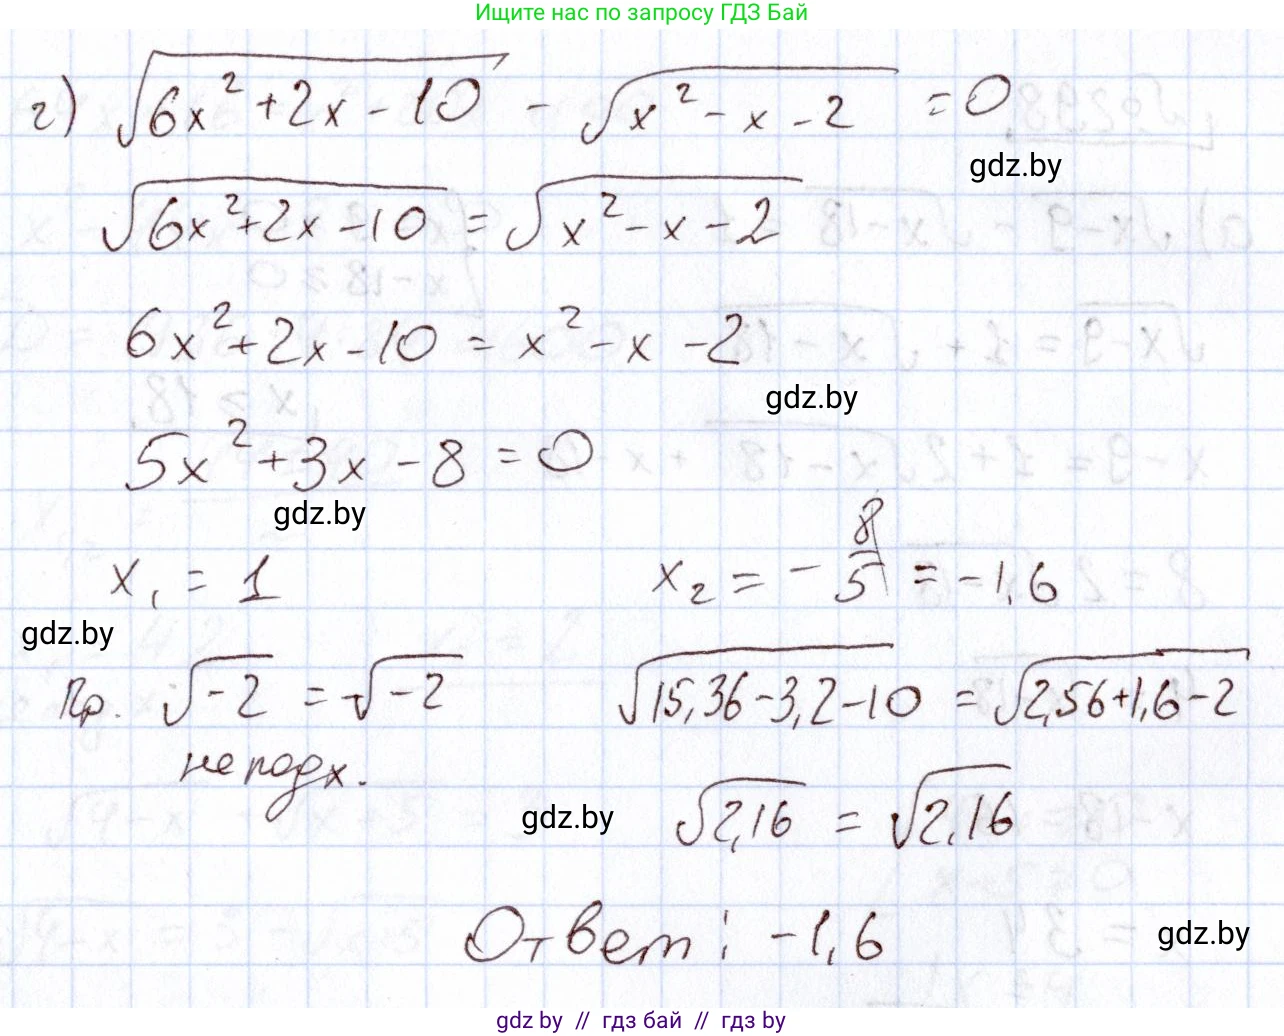 Ищите нас по запросу ГДЗ Бай
г) √(6x² + 2x - 10) - √(x² - x - 2) = 0
gdz.by
√(6x² + 2x - 10) = √(x² - x - 2)
6x² + 2x - 10 = x² - x - 2
gdz.by
5x² + 3x - 8 = 0
gdz.by
x₁ = 1 x₂ = - 8/5 = -1,6
gdz.by
Пр. √(-2) = √(-2) √(15,36 - 3,2 - 10) = √(2,56 + 1,6 - 2)
не подх.
gdz.by √(2,16) = √(2,16)
Ответ: -1,6
gdz.by
gdz by // гдз бай // gdz by